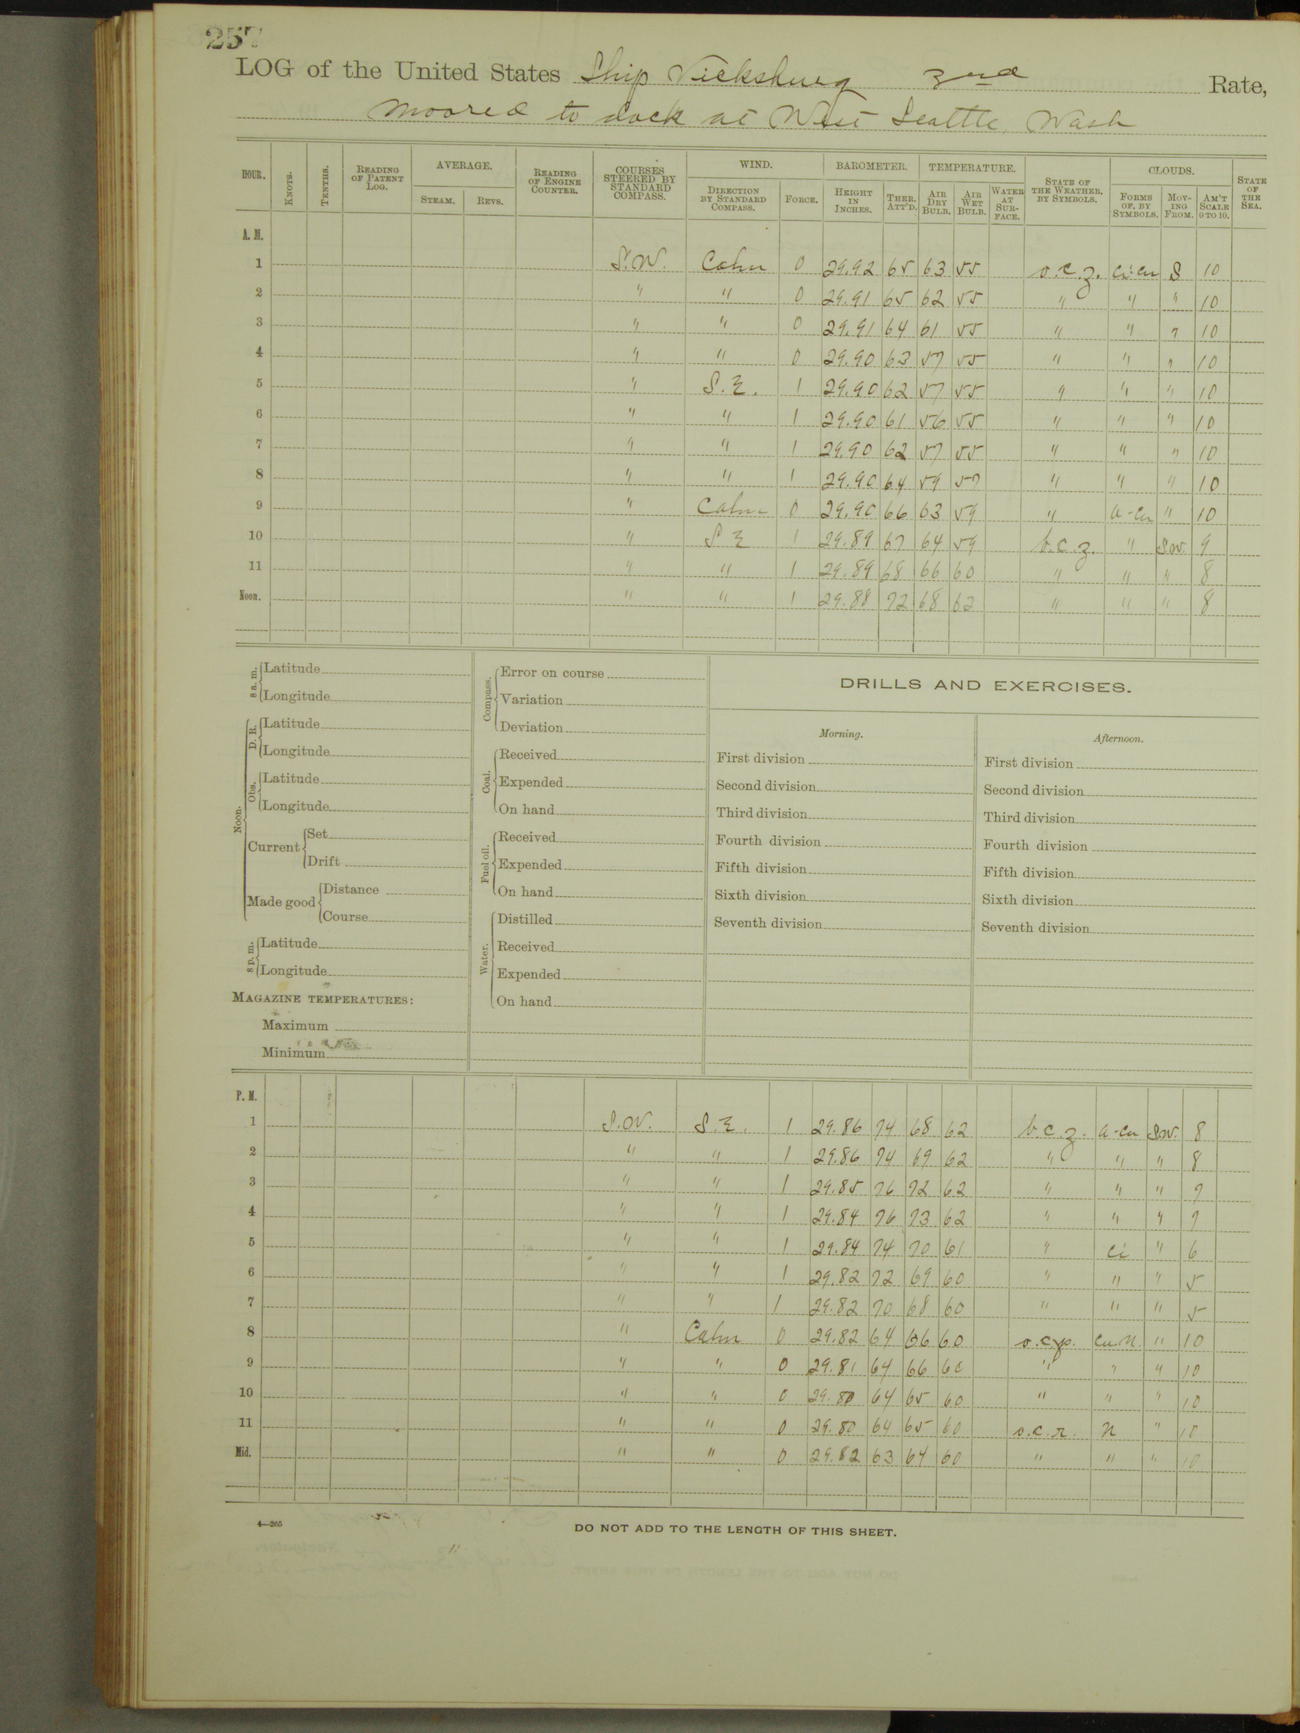 257
LOG of the United States Ship Vicksburg 2nd Rate,
Moored to dock at West Seattle, Wash
HOUR. KNOTS. TENTHS. READING OF PATENT LOG. AVERAGE. STEAM. REVS. READING OF ENGINE COUNTER. COURSES STEERED BY STANDARD COMPASS. WIND. DIRECTION BY STANDARD COMPASS. FORCE. BAROMETER. HEIGHT IN INCHES. THER. ATT'D. TEMPERATURE. AIR DRY BULB. AIR WET BULB. WATER AT SUR-FACE. STATE OF THE WEATHER, BY SYMBOLS. CLOUDS. FORMS OF, BY SYMBOLS. MOV-ING FROM. AM'T SCALE 0 TO 10. STATE OF THE SEA.
A. M.
1 S.W. Calm 0 29.92 65 63 55 o.c.z. ci-cu S 10
2 " " 0 29.91 65 62 55 " " " 10
3 " " 0 29.91 64 61 55 " " " 10
4 " " 0 29.90 63 57 55 " " " 10
5 " S.E. 1 29.90 62 57 55 " " " 10
6 " " 1 29.90 61 56 55 " " " 10
7 " " 1 29.90 62 57 55 " " " 10
8 " " 1 29.90 64 59 57 " " " 10
9 " Calm 0 29.90 66 63 59 " a-cu " 10
10 " S E 1 29.89 67 64 59 b.c.z. " S.W. 9
11 " " 1 29.89 68 66 60 " " " 8
Noon. " " 1 29.88 72 68 62 " " " 8
8 a. m. Latitude
Longitude
Noon. D. R. Latitude
Longitude
Obs. Latitude
Longitude
Current Set
Drift
Made good Distance
Course
8 p. m. Latitude
Longitude
MAGAZINE TEMPERATURES:
Maximum
Minimum
Compass. Error on course
Variation
Deviation
Coal. Received
Expended
On hand
Fuel oil. Received
Expended
On hand
Water. Distilled
Received
Expended
On hand
DRILLS AND EXERCISES.
Morning.
First division
Second division
Third division
Fourth division
Fifth division
Sixth division
Seventh division
Afternoon.
First division
Second division
Third division
Fourth division
Fifth division
Sixth division
Seventh division
P. M.
1 S.W. S.E. 1 29.86 74 68 62 b.c.z. a-cu S.W. 8
2 " " 1 29.86 74 69 62 " " " 8
3 " " 1 29.85 76 72 62 " " " 7
4 " " 1 29.84 76 73 62 " " " 7
5 " " 1 29.84 74 70 61 " ci " 6
6 " " 1 29.82 72 69 60 " " " 5
7 " " 1 29.82 70 68 60 " " " 5
8 " Calm 0 29.82 64 66 60 o.c.p. cu.n. " 10
9 " " 0 29.81 64 66 60 " " " 10
10 " " 0 29.80 64 65 60 " " " 10
11 " " 0 29.80 64 65 60 o.c.r. n " 10
Mid. " " 0 29.82 63 64 60 " " " 10
4—265
DO NOT ADD TO THE LENGTH OF THIS SHEET.